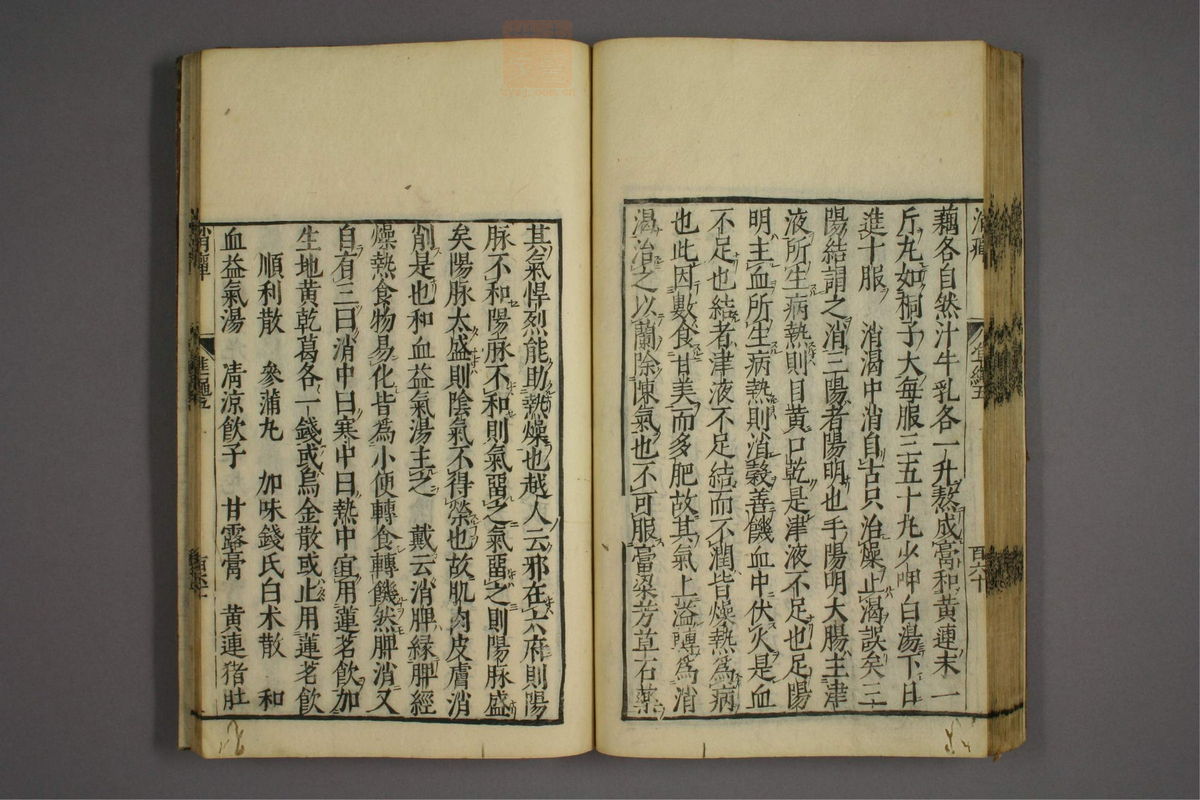 藕各自然汁牛乳各一升熬成膏和黃連末一
斤丸如桐子大每服三五十丸少呷白湯下日
進十服　消渴中消自古只治燥止渴誤矣三
陽結謂之消三陽者陽明也手陽明大腸主津
液所生病熱則目黃口乾是津液不足也足陽
明主血所生病熱則消穀善饑血中伏火是血
不足也結者津液不足結而不潤皆燥熱爲病
也此因數食甘美而多肥故其氣上溢轉爲消
渴治之以蘭除陳氣也不可服膏粱芳草石藥
其氣悍烈能助熱燥也越人云邪在六府則陽
脉不和陽脉不和則氣留之氣留之則陽脉盛
矣陽脉太盛則陰氣不得榮也故肌肉皮膚消
削是也和血益氣湯主之　戴云消脾緣脾經
燥熱食物易化皆爲小便轉食轉饑然脾消又
自有三曰消中曰寒中曰熱中宜用蓮茗飲加
生地黄乾葛各一錢或烏金散或止用蓮茗飲
順利散　參蒲丸　加味錢氏白术散　和
血益氣湯　清涼飲子　甘露膏　黄連猪肚